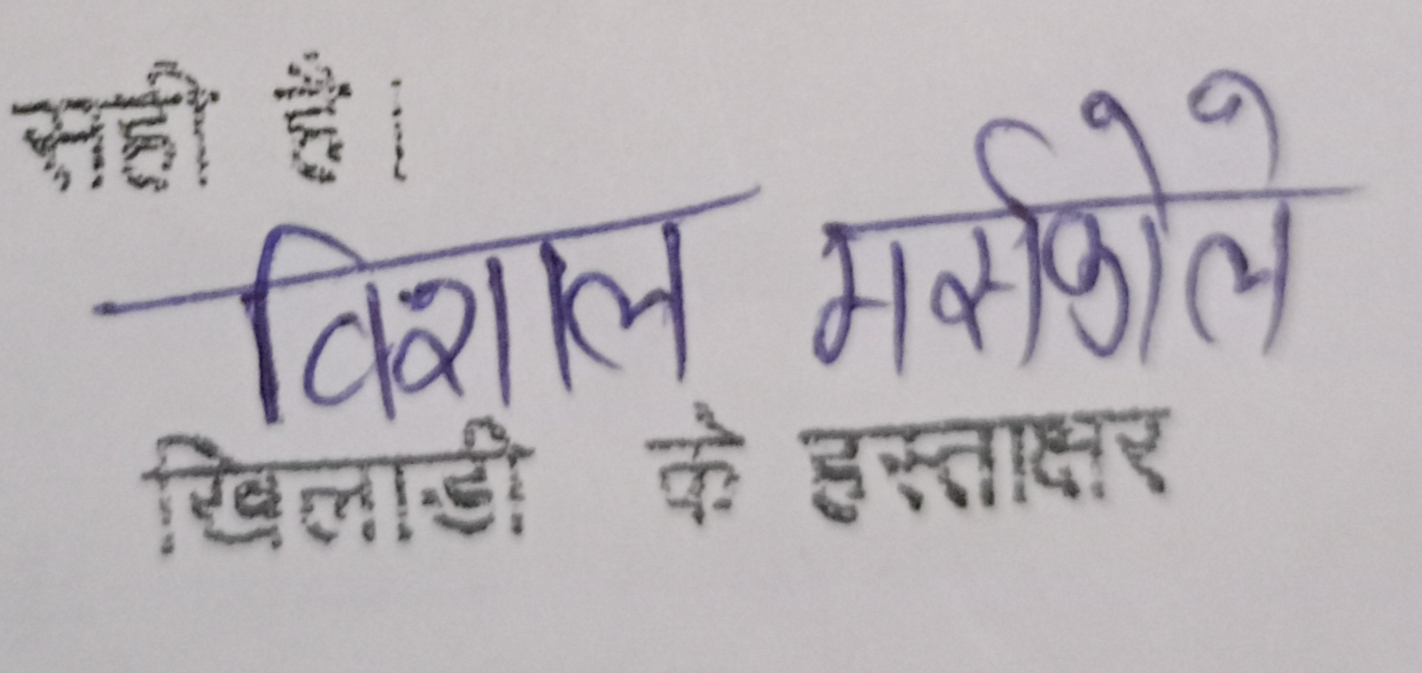 सही है।
विशाल मर्सकोले
खिलाडी के हस्ताक्षर